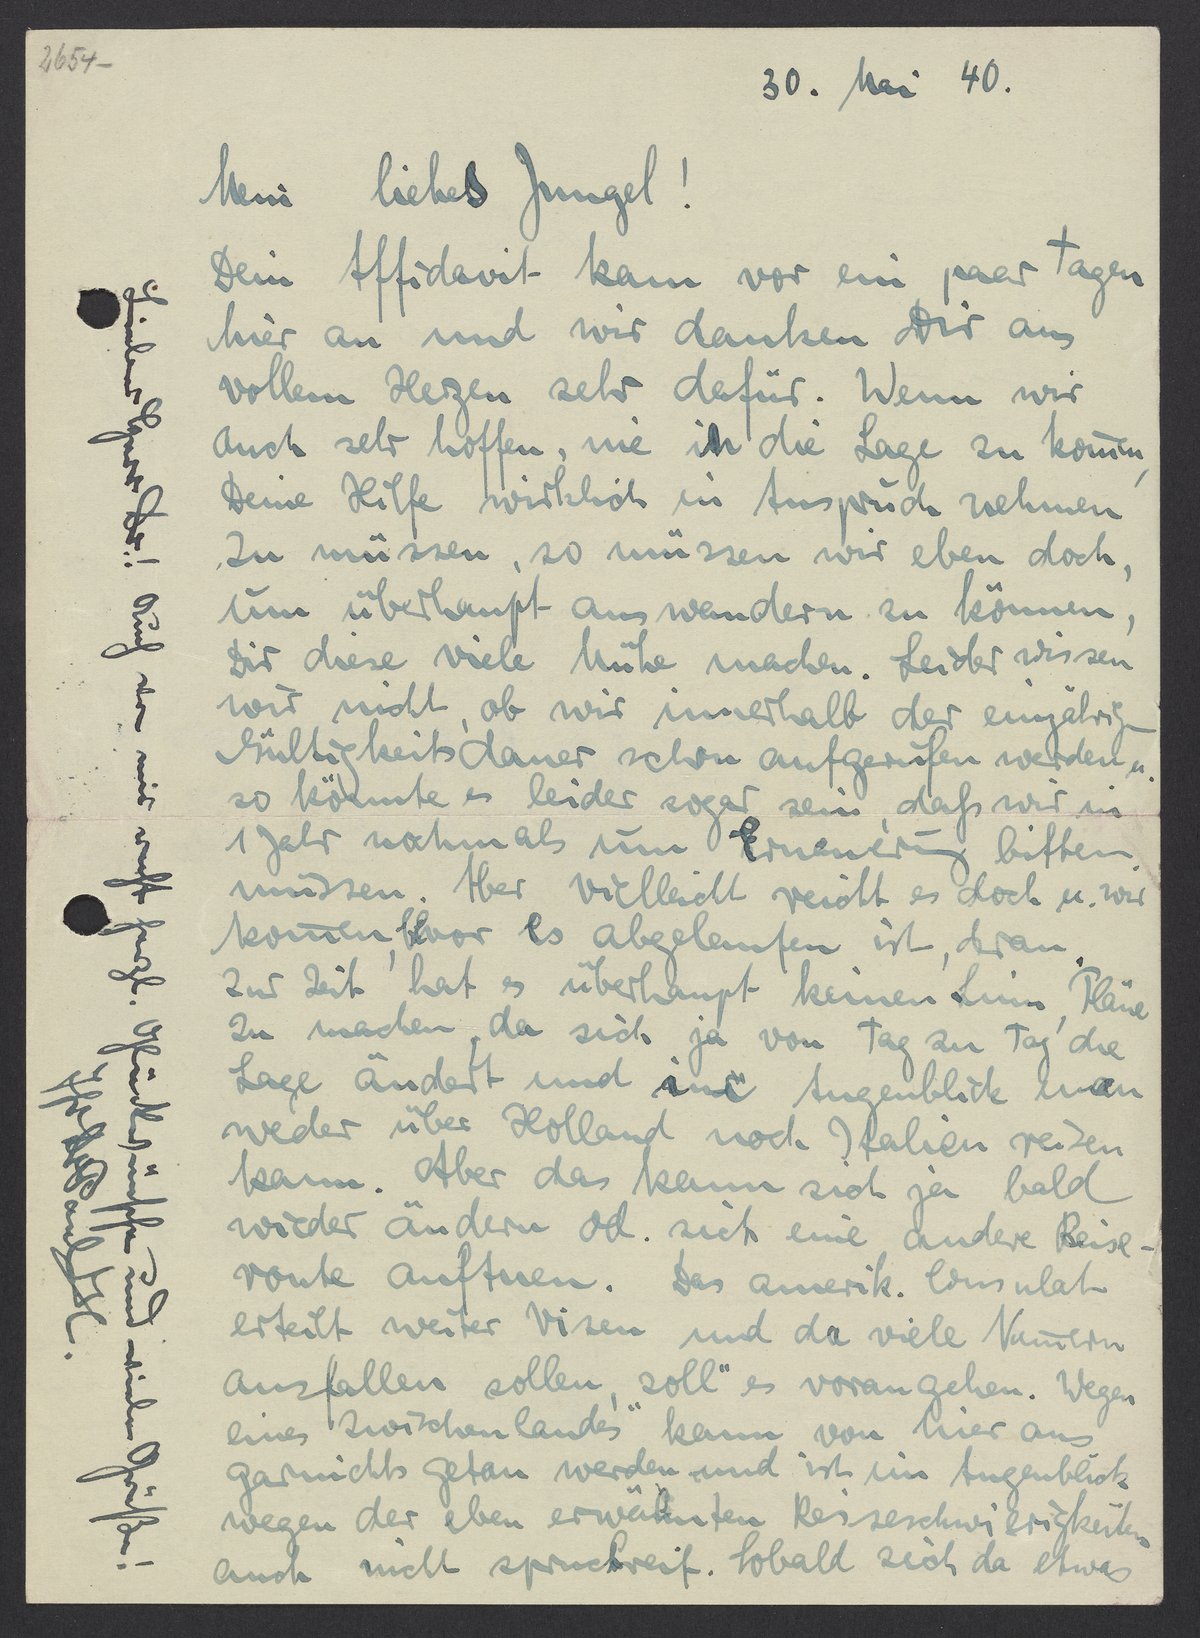 2654-
30. Mai 40.
Mein liebes Jungel!
Dein Affidavit kam vor ein paar Tagen
hier an und wir danken Dir aus
vollem Herzen sehr dafür. Wenn wir
auch sehr hoffen, nie in die Lage zu kom̄en,
Deine Hilfe wirklich in Anspruch nehmen
zu müssen, so müssen wir eben doch,
um überhaupt auswandern zu können,
Dir diese viele Mühe machen. Leider wissen
wir nicht, ob wir innerhalb der einjährig
Gültigkeitsdauer schon aufgerufen werden u.
so könnte es leider sogar sein, dass wir in
1 Jahr nochmals um Erneuerung bitten
müssen. Aber vielleicht reicht es doch u. wir
kom̄en, bevor es abgelaufen ist, dran.
Zur Zeit hat es überhaupt keinen Sinn, Pläne
zu machen, da sich ja von Tag zu Tag die
Lage ändert und im Augenblick man
weder über Holland noch Italien reisen
kann. Aber das kann sich ja bald
wieder ändern od. sich eine andere Reise-
route auftuen. Das amerik. Consulat
erteilt weiter Visen und da viele Num̄ern
ausfallen sollen, "soll" es vorangehen. Wegen
eines "Zwischenlandes" kann von hier aus
garnichts getan werden und ist im Augenblick
wegen der eben erwähnten Reiseschwierigkeiten
auch nicht spruchreif. Sobald sich da etwas
Auch von mir recht herzl. Glückwünsche und vielen Grüße!